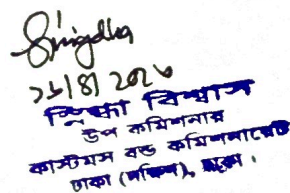 Snigdha
২১/৪/২০২৬
স্নিগ্ধা বিশ্বাস
উপ কমিশনার
কাস্টমস বন্ড কমিশনারেট
ঢাকা (দক্ষিণ), ঢাকা।